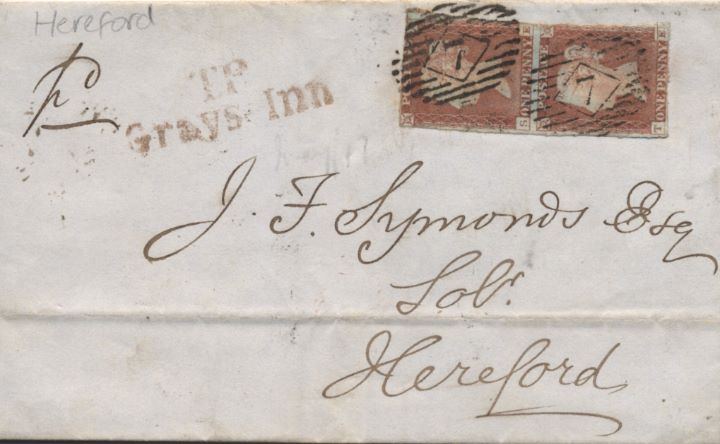 Hereford
pd
TP
Grays Inn
ONE PENNY
ONE PENNY
S E
T E
7
7
J. F. Symonds Esq
Solr.
Hereford